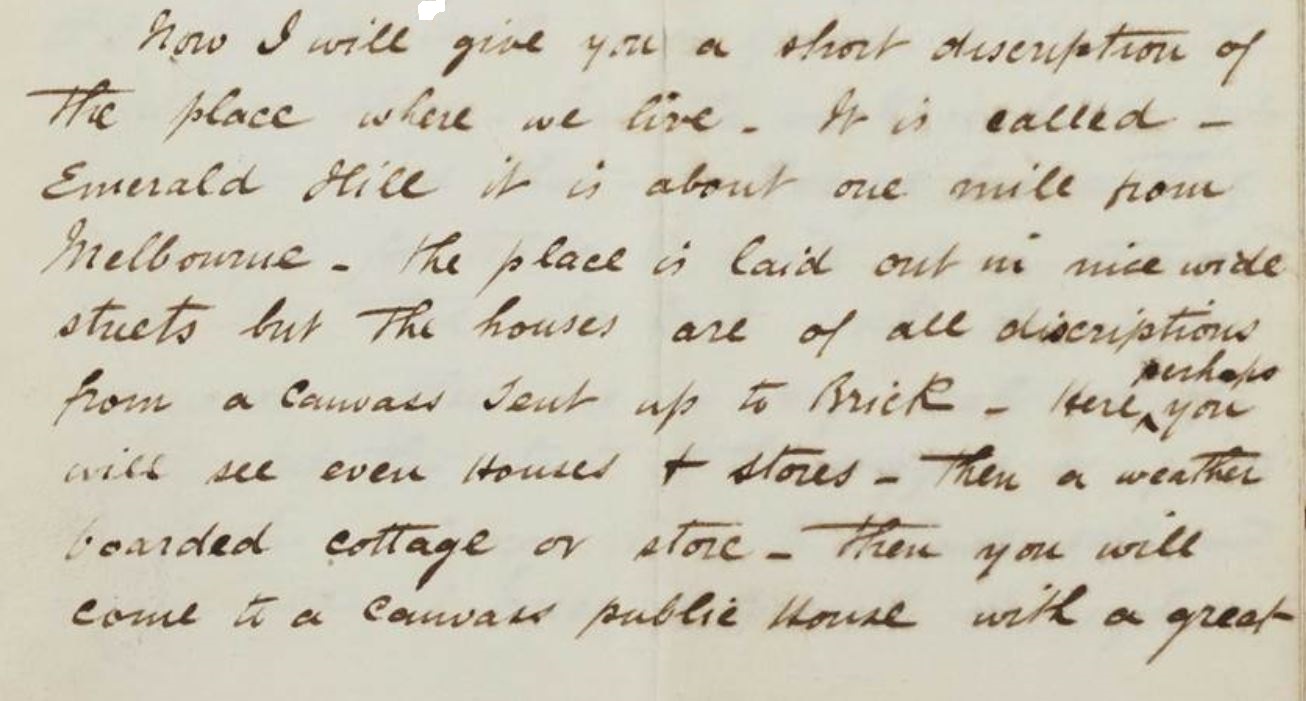 Now I will give you a short discription of
the place where we live - It is called -
Emerald Hill it is about one mile from
Melbourne - the place is laid out in nice wide
streets but the houses are of all discriptions
from a Canvass Tent up to Brick - Here perhaps you
will see even Houses + stores - then a weather
boarded cottage or store - then you will
come to a Canvass public House with a great